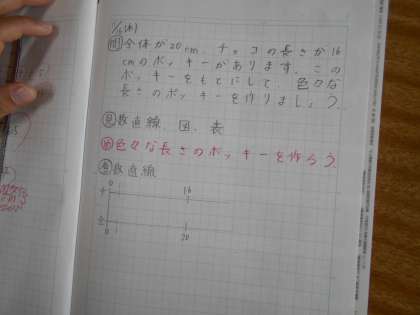 1/(水)
問 全体が20cm、チョコの長さが16
cmのポッキーがあります。この
ポッキーをもとにして、色々な
長さのポッキーを作りましょう。
見 数直線、図、表
め 色々な長さのポッキーを作ろう。
考 数直線
0 16
チ
全
0 20